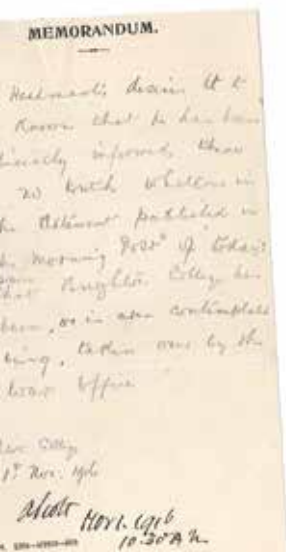 MEMORANDUM.
desires it to
known that he has been
officially informed there
no truth whatever in
the statement published in
the "Morning Post" of today:
that Brighton College has
been, or is even contemplated
being, taken over by the
War Office
College
1st Nov. 1916
Nov 1. 1916
10.30 A.M.